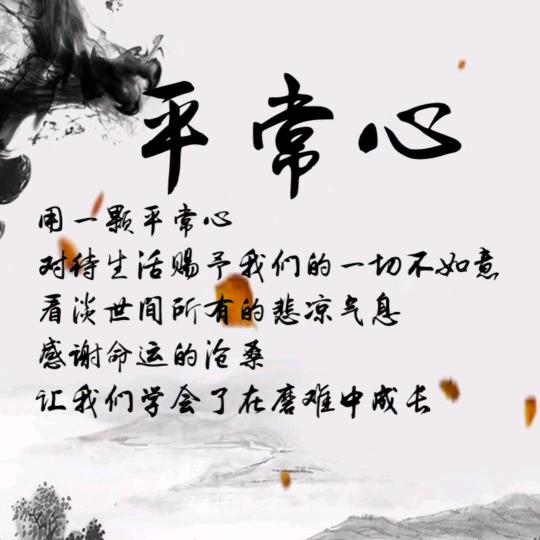 平常心
用一颗平常心
对待生活赐予我们的一切不如意
看淡世间所有的悲凉气息
感谢命运的沧桑
让我们学会了在磨难中成长